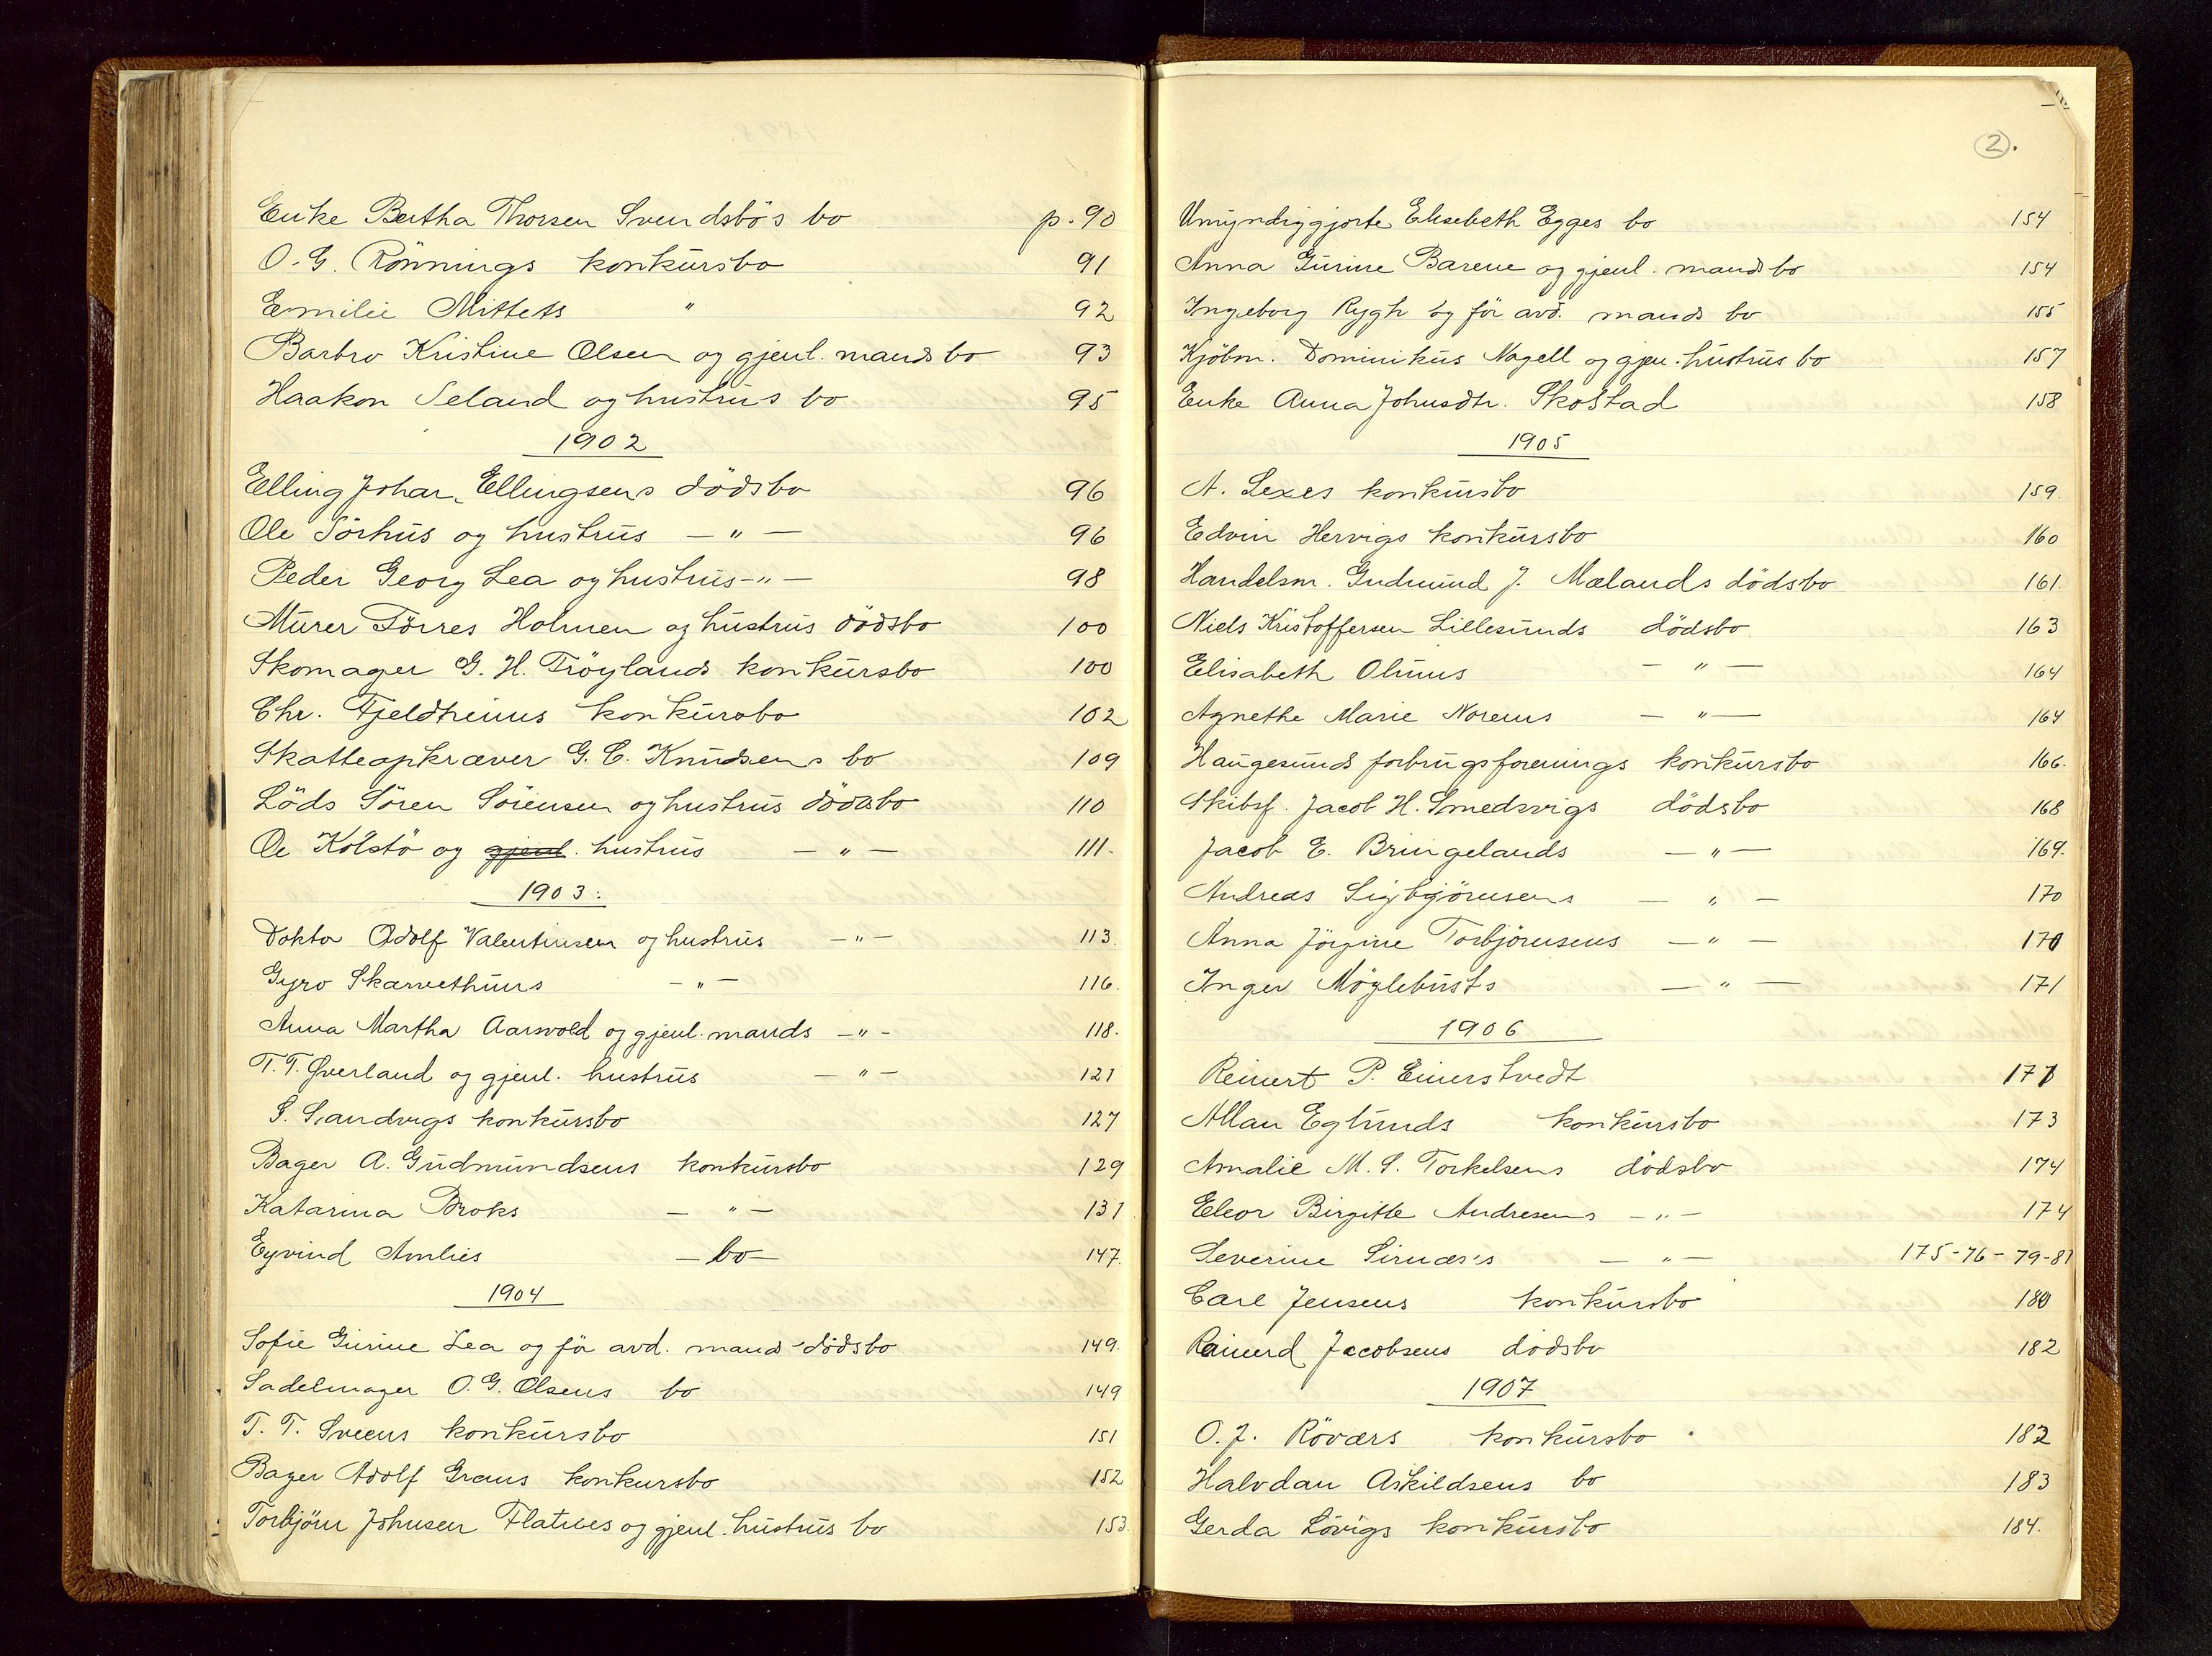 Enke Bertha Thorsen Svendsbös bo p. 90
O. G. Rönnings konkursbo 91
Emilie Mittets " 92
Barbro Kristine Olsen og gjenl. mands bo 93
Haakon Seland og hustrus bo 95
1902
Elling Johan Ellingsens dödsbo 96
Ole Sörhus og hustrus — " — 96
Peder Georg Lea og hustrus - " - 98
Murer Törres Holmen og hustrus dödsbo 100
Skomager G. H. Tröylands konkursbo 100
Chr. Fjeldheims konkursbo 102
Skatteopkræver G. C. Knudsens bo 109
Löds Sören Sörensen og hustrus dödsbo 110
Ole Kolstö og gjenl. hustrus — " — 111.
1903:
Doktor Adolf Valentinsen og hustrus — " — 113.
Gyro Skarvethuns — " — 116.
Anna Martha Aarsvold og gjenl. mands — " - 118.
T. T. Øverland og gjenl. hustrus — " — 121
S. Sandvigs konkursbo 127
Bager A. Gudmundsens konkursbo 129
Katarina Broks — " — 131
Eyvind Amlies — bo — 147.
1904
Sofie Gurine Lea og för avd. mands dödsbo 149.
Sadelmager O. G. Olsens bo 149
T. T. Sveens konkursbo 151
Bager Adolf Graus konkursbo 152
Torbjörn Johnsen Flatnes og gjenl. hustrus bo 153.
2.
Umyndiggjorte Elisebeth Egges bo 154
Anna Gurine Barene og gjenl. mands bo 154
Ingeborg Rygh og för avd. mands bo 155
Kjöbm. Dominikus Nagell og gjen. hustrus bo 157
Enke Anna Johnsdtr. Skolstad 158
1905
A. Lexes konkursbo 159.
Edvin Hervigs konkursbo 160
Handelsm. Gudmund J. Mælands dödsbo 161.
Niels Kristoffersen Lillesunds dödsbo 163
Elisabeth Oluns — " — 164
Agnethe Marie Norems — " — 164
Haugesunds forbrugsforenings konkursbo 166.
Skibsf. Jacob H. Smedsvigs dödsbo 168
Jacob E. Bringelands — " — 169.
Andreas Sigbjörnsens — " — 170
Anna Jörgine Torbjörnsens — " — 170
Inger Möglebusts — " — 171
1906
Reinert P. Einerstvedt 171
Allan Eglunds konkursbo 173
Amalie M. S. Torkelsens dödsbo 174
Eleor Birgitte Andresens — " — 174
Severine Sirnæs's — " — 175-76-79-81
Carl Jensens konkursbo 180
Reinerd Jacobsens dödsbo 182
1907
O. J. Rövärs konkursbo 182
Halvdan Askildsens bo 183
Gerda Lövigs konkursbo 184.